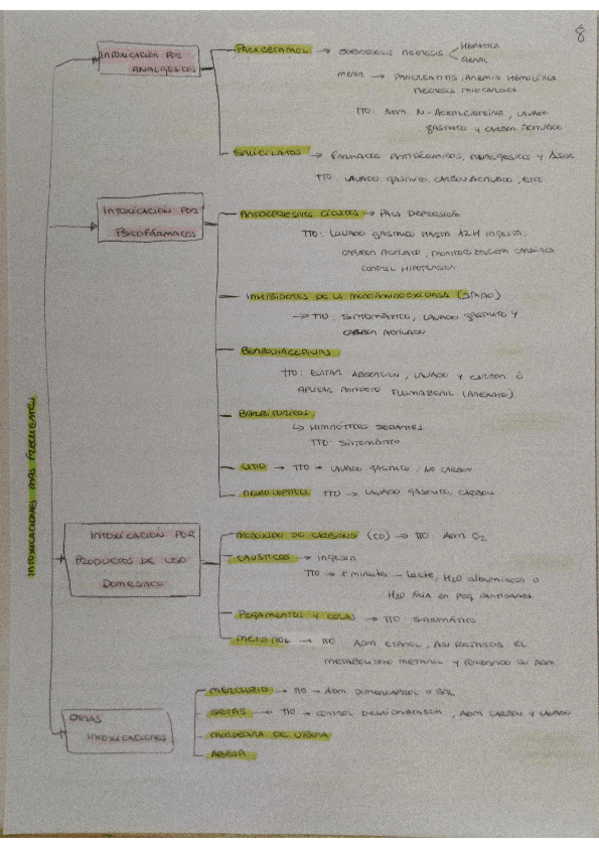 8
INTOXICACIONES MÁS FRECUENTES
INTOXICACIÓN POR
ANALGÉSICOS
PARACETAMOL → SOBREDOSIS NECROSIS
HEPÁTICA
RENAL
→ PANCREATITIS, ANEMIA HEMOLÍTICA
NECROSIS MIOCARDICA
TTO: ADM N-ACETILCISTEÍNA, LAVADO
GÁSTRICO Y CARBÓN ACTIVADO
SALICILATOS → FÁRMACOS ANTITÉRMICOS, ANALGÉSICOS Y
TTO: LAVADO GÁSTRICO, CARBÓN ACTIVADO, ETC
INTOXICACIÓN POR
PSICOFÁRMACOS
ANTIDEPRESIVOS CÍCLICOS → PARA DEPRESIÓN
TTO: LAVADO GÁSTRICO HASTA 12H INGESTA,
CARBÓN ACTIVADO, MONITORIZACIÓN CARDIACA
CONTROL HIPOTENSIÓN
INHIBIDORES DE LA MONOAMINOOXIDASA (IMAO)
→ TTO: SINTOMÁTICO, LAVADO GÁSTRICO Y
CARBÓN ACTIVADO
BENZODIACEPINAS
TTO: EVITAR ABSORCIÓN, LAVADO Y CARBÓN Ó
APLICAR ANTÍDOTO FLUMAZENIL (ANEXATE)
BARBITÚRICOS
↳ HIPNÓTICOS SEDANTES
TTO: SINTOMÁTICO
LITIO → TTO → LAVADO GÁSTRICO, NO CARBÓN
NEUROLÉPTICOS TTO → LAVADO GÁSTRICO, CARBÓN
INTOXICACIÓN POR
PRODUCTOS DE USO
DOMÉSTICO
MONÓXIDO DE CARBONO (CO) → TTO: ADM O2
CAUSTICOS → INGESTA
TTO → 1º minuto - Leche, H2O albuminosa o
H2O fría en peq cantidades
PEGAMENTOS Y COLAS → TTO: SINTOMÁTICO
METANOL → TTO ADM ETANOL, ASI RETARDAS EL
METABOLISMO METANOL Y
OTRAS
INTOXICACIONES
MERCURIO → TTO → ADM DIMERCAPROL O BAL
SETAS → TTO → CONTROL, ADM CARBÓN Y LAVADO
MORDEDURA DE VÍBORA
ABEJA